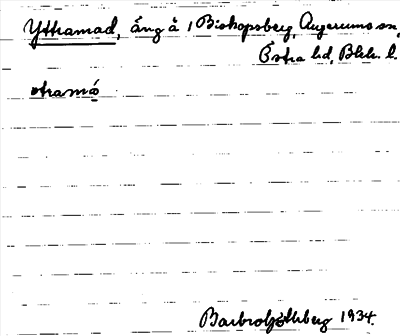 Yttramad, äng å 1 Biskopsberg, Augerums sn,
Östra hd, Blek. l.
otramá
Barbro Göthberg 1934